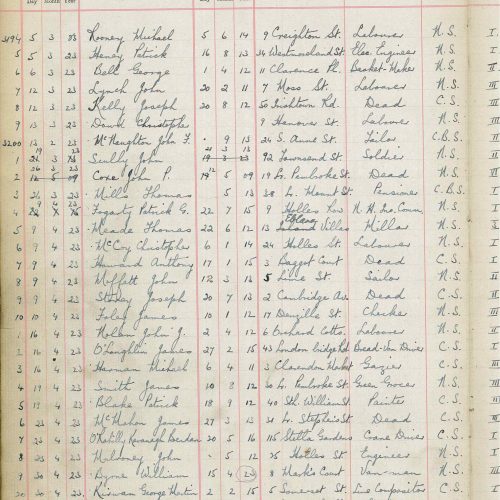 Day Month Year Day Month Year
3194 5 3 23 Rooney Michael 5 6 14 9 Creighton St. Labourer N.S. I
5 5 3 23 Heney Patrick 16 8 13 34 Westmoreland St. Elec. Engineer N.S. II
6 6 3 23 Bell George 1 4 12 11 Clarence Pl. Basket-Maker N.S.
7 12 3 23 Lynch John 20 2 11 7 Moss St. Labourer N.S. III
8 12 3 23 Kelly Joseph 20 8 12 50 Irishtown Rd. Dead C.S. III
9 13 3 23 Christopher 9 Hanover St. Labourer N.S. III
3200 13 2 23 McNaughton John F. 9 13 24 S. Anne St. Tailor C.B.S. II
1 23 Scully John 21 3 13 92 Townsend St. Soldier N.S. II
2 26 3 23 Coxe John P. 19 12 5 09 19 Lr. Pembroke St. Dead N.S. II
3 26 3 23 Mills Thomas 5 13 38 Lr. Mount St. Pensioner C.B.S. I
4 9 4 23 Fogarty Patrick G. 22 7 15 9 Holles Row N.H. Ins. Comm. N.S. I
5 9 4 23 Meade Thomas 22 6 12 13 Villas Millar N.S. II
6 9 4 23 McCoy Christopher 6 1 14 24 Holles St. Labourer N.S. I
7 9 4 23 Howard Anthony 17 1 15 3 Bagget Court Dead N.S. I
8 9 4 23 Moffett John 12 3 13 5 Lime St. Sailor N.S. II
9 9 4 23 Joseph 20 7 13 2 Cambridge Av. Dead C.S. II
10 10 4 23 Foley James 10 1 12 17 Denzille St. Checker N.S. III
1 16 4 23 Nolan John J. 2 4 12 6 Orchard Cotts. Labourer N.S. I
2 16 4 23 O'Loughlin James 27 2 15 43 London bridge Rd. Bread-Van Driver C.S. I
3 16 4 23 Harman Michael 6 4 11 3 Clarendon Market C.S. III
4 19 4 23 Smith James 10 8 12 30 Lr. Pembroke St. Green Grocer N.S. II
5 19 4 23 Blake Patrick 18 9 12 40 Sth. William St. Painter C.S. II
6 23 4 23 McMahon James 27 3 13 31 Lr. Stephen St. Dead C.S. II
7 23 4 23 Brendan 20 5 16 115 Stella Gardens Crane Driver C.S. I
8 23 4 23 Moloney John 5 12 25 Holles St. Engineer N.S. I
9 30 4 23 Byrne William 15 4 23 8 Mark's Court Van-man N.S. III
20 30 4 23 Kirwan George Martin 2 2 15 5 Somerset St. Compositor C.S. I